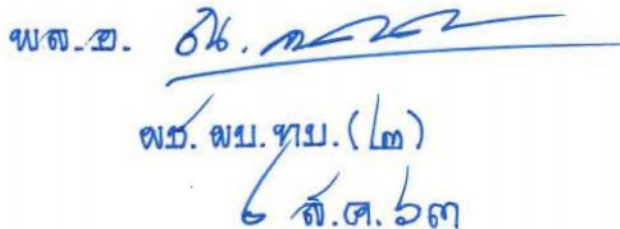 พล.อ.
ผช.ผบ.ทบ.(๒)
๖ ส.ค. ๖๓